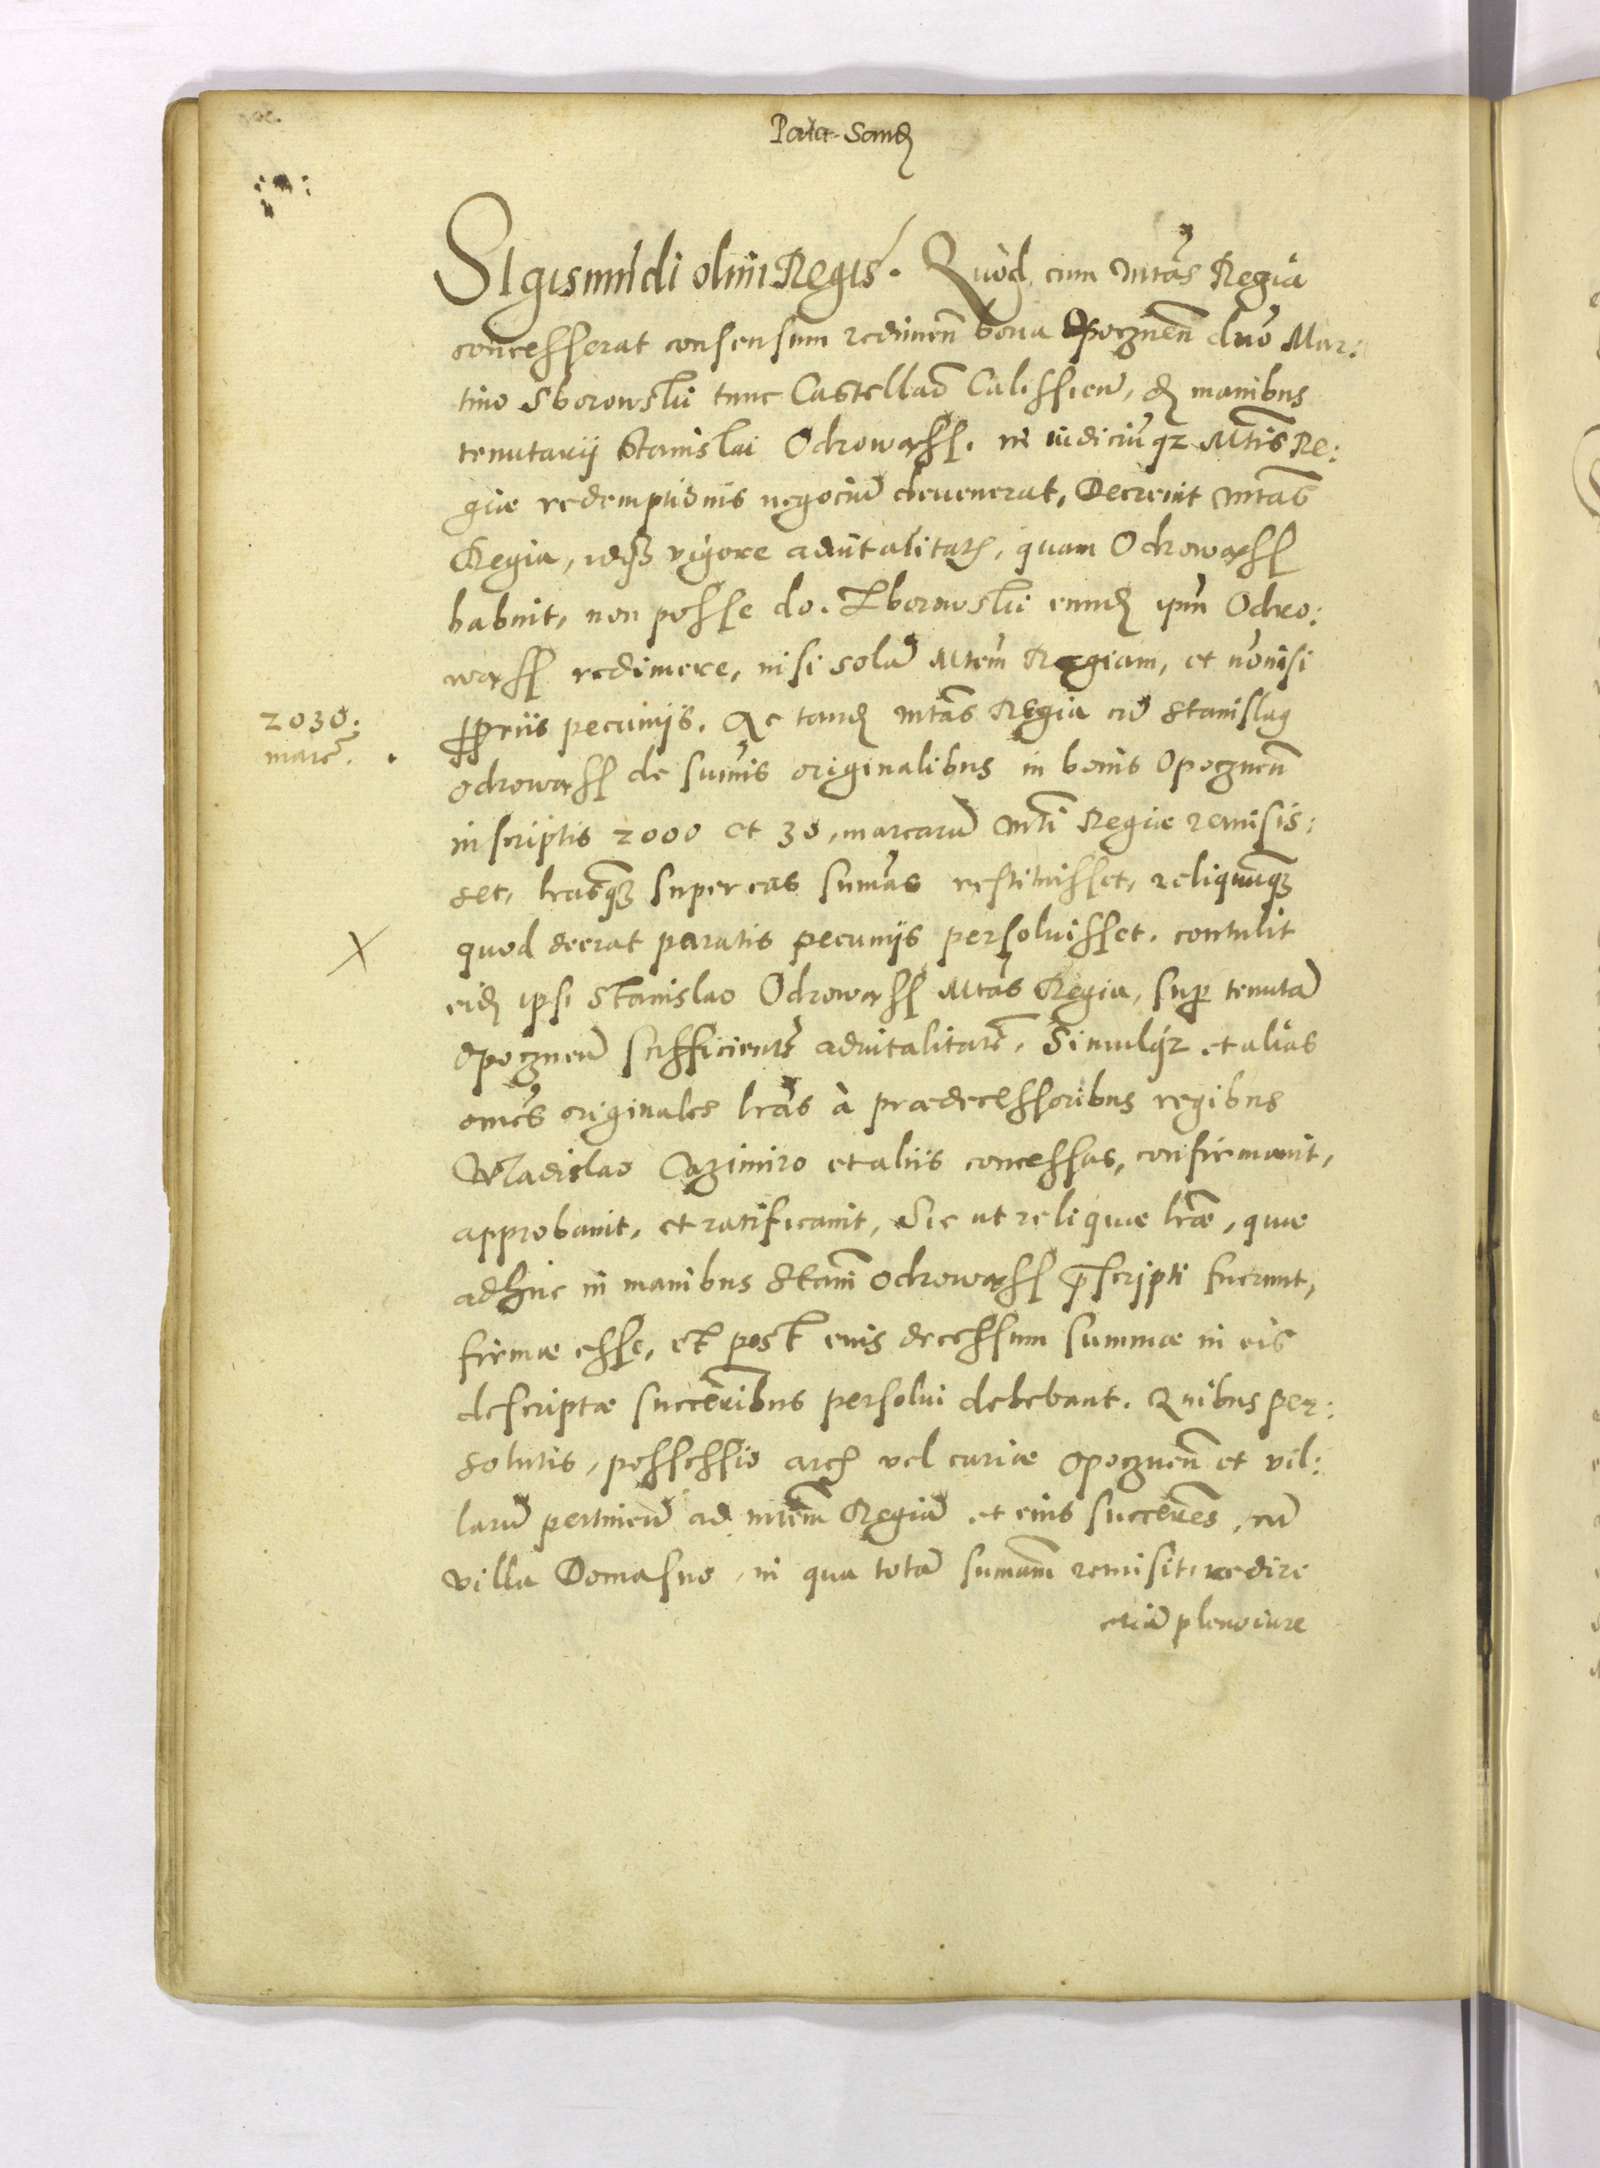 Palat Sand
Sigismu̅di olim Regis. Quod cum Mtas Regia
concesserat consensum redimen̅ bona Opocznen̅ d̅no Mar:
tino Sborowski tunc Castellan̅o Calissien̅, de manibus
tenutarij Stanislai Odrowąsz. in iudiciu̅q3 Mtis Re:
giae redemptionis negociu̅ devenerat, Decrevit Mtas
Regia, vigore advitalitatis, quam Odrowąsz
habuit, non posse do. Zborowski eund ipm̅ Odro:
wąsz redimere, nisi sola̅ Mtem̅ Regiam, et no̅nisi
ppriis pecunijs. Ac tand Mtas Regia cu̅ Stanislao
2030.
marc̅.
Odrowąsz de summis originalibus in bonis Opocznen̅
inscriptis 2000 et 30, marcaru̅ Mti Regiae remisis:
set, lrasq3 super eas sum̅as restituisset, reliquu̅q3
quod deerat paratis pecunijs persolvisset. contulit
X
eid ipsi Stanislao Odrowąsz Mtas Regia, sup tenuta̅
Opocznen̅ sufficiente̅ advitalitate̅. Simulq3 et alias
omes originales lras à praedecessoribus regibus
Wladislao Cazimiro et aliis concessas, confirmavit,
approbavit, et ratificavit, Sic ut reliquae lrae, quae
adhuc in manibus Stani̅ Odrowąsz p̅scripti fuerunt,
firmae esse, et post eius decessum summae in eis
descriptae succe̅ribus persolvi debebant. Quibus per:
solutis, possessio arcis vel curiae Opocznen̅ et vil:
laru̅ pertinen̅ ad Mtem̅ Regia̅ et eius succe̅res, cu̅
villa Domasno, in qua tota̅ summam̅ remisit, redire
etia̅ pleno iure